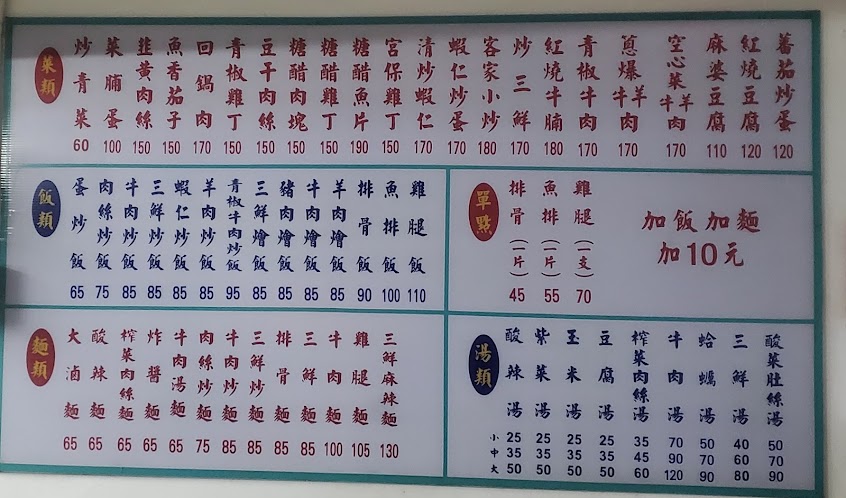 菜類
炒青菜 60
菜脯蛋 100
韮黃肉絲 150
魚香茄子 150
回鍋肉 170
青椒雞丁 150
豆干肉絲 150
糖醋肉塊 150
糖醋雞丁 150
糖醋魚片 190
宮保雞丁 150
清炒蝦仁 170
蝦仁炒蛋 170
客家小炒 180
炒三鮮 170
紅燒牛腩 180
青椒牛肉 170
蔥爆牛羊肉 170
空心菜牛羊肉 170
麻婆豆腐 110
紅燒豆腐 120
蕃茄炒蛋 120
飯類
蛋炒飯 65
肉絲炒飯 75
牛肉炒飯 85
三鮮炒飯 85
蝦仁炒飯 85
羊肉炒飯 85
青椒牛肉炒飯 95
三鮮燴飯 85
豬肉燴飯 85
牛肉燴飯 85
羊肉燴飯 85
排骨飯 90
魚排飯 100
雞腿飯 110
單點
排骨(一片) 45
魚排(一片) 55
雞腿(一支) 70
加飯加麵
加10元
麵類
大滷麵 65
酸辣麵 65
榨菜肉絲麵 65
炸醬麵 65
牛肉湯麵 65
肉絲炒麵 75
牛肉炒麵 85
三鮮炒麵 85
排骨麵 85
三鮮麵 85
牛肉麵 100
雞腿麵 105
三鮮麻辣麵 130
湯類
酸辣湯 紫菜湯 玉米湯 豆腐湯 榨菜肉絲湯 牛肉湯 蛤蠣湯 三鮮湯 酸菜肚絲湯
小 25 25 25 25 35 70 50 40 50
中 35 35 35 35 45 90 70 60 70
大 50 50 50 50 60 120 90 80 90